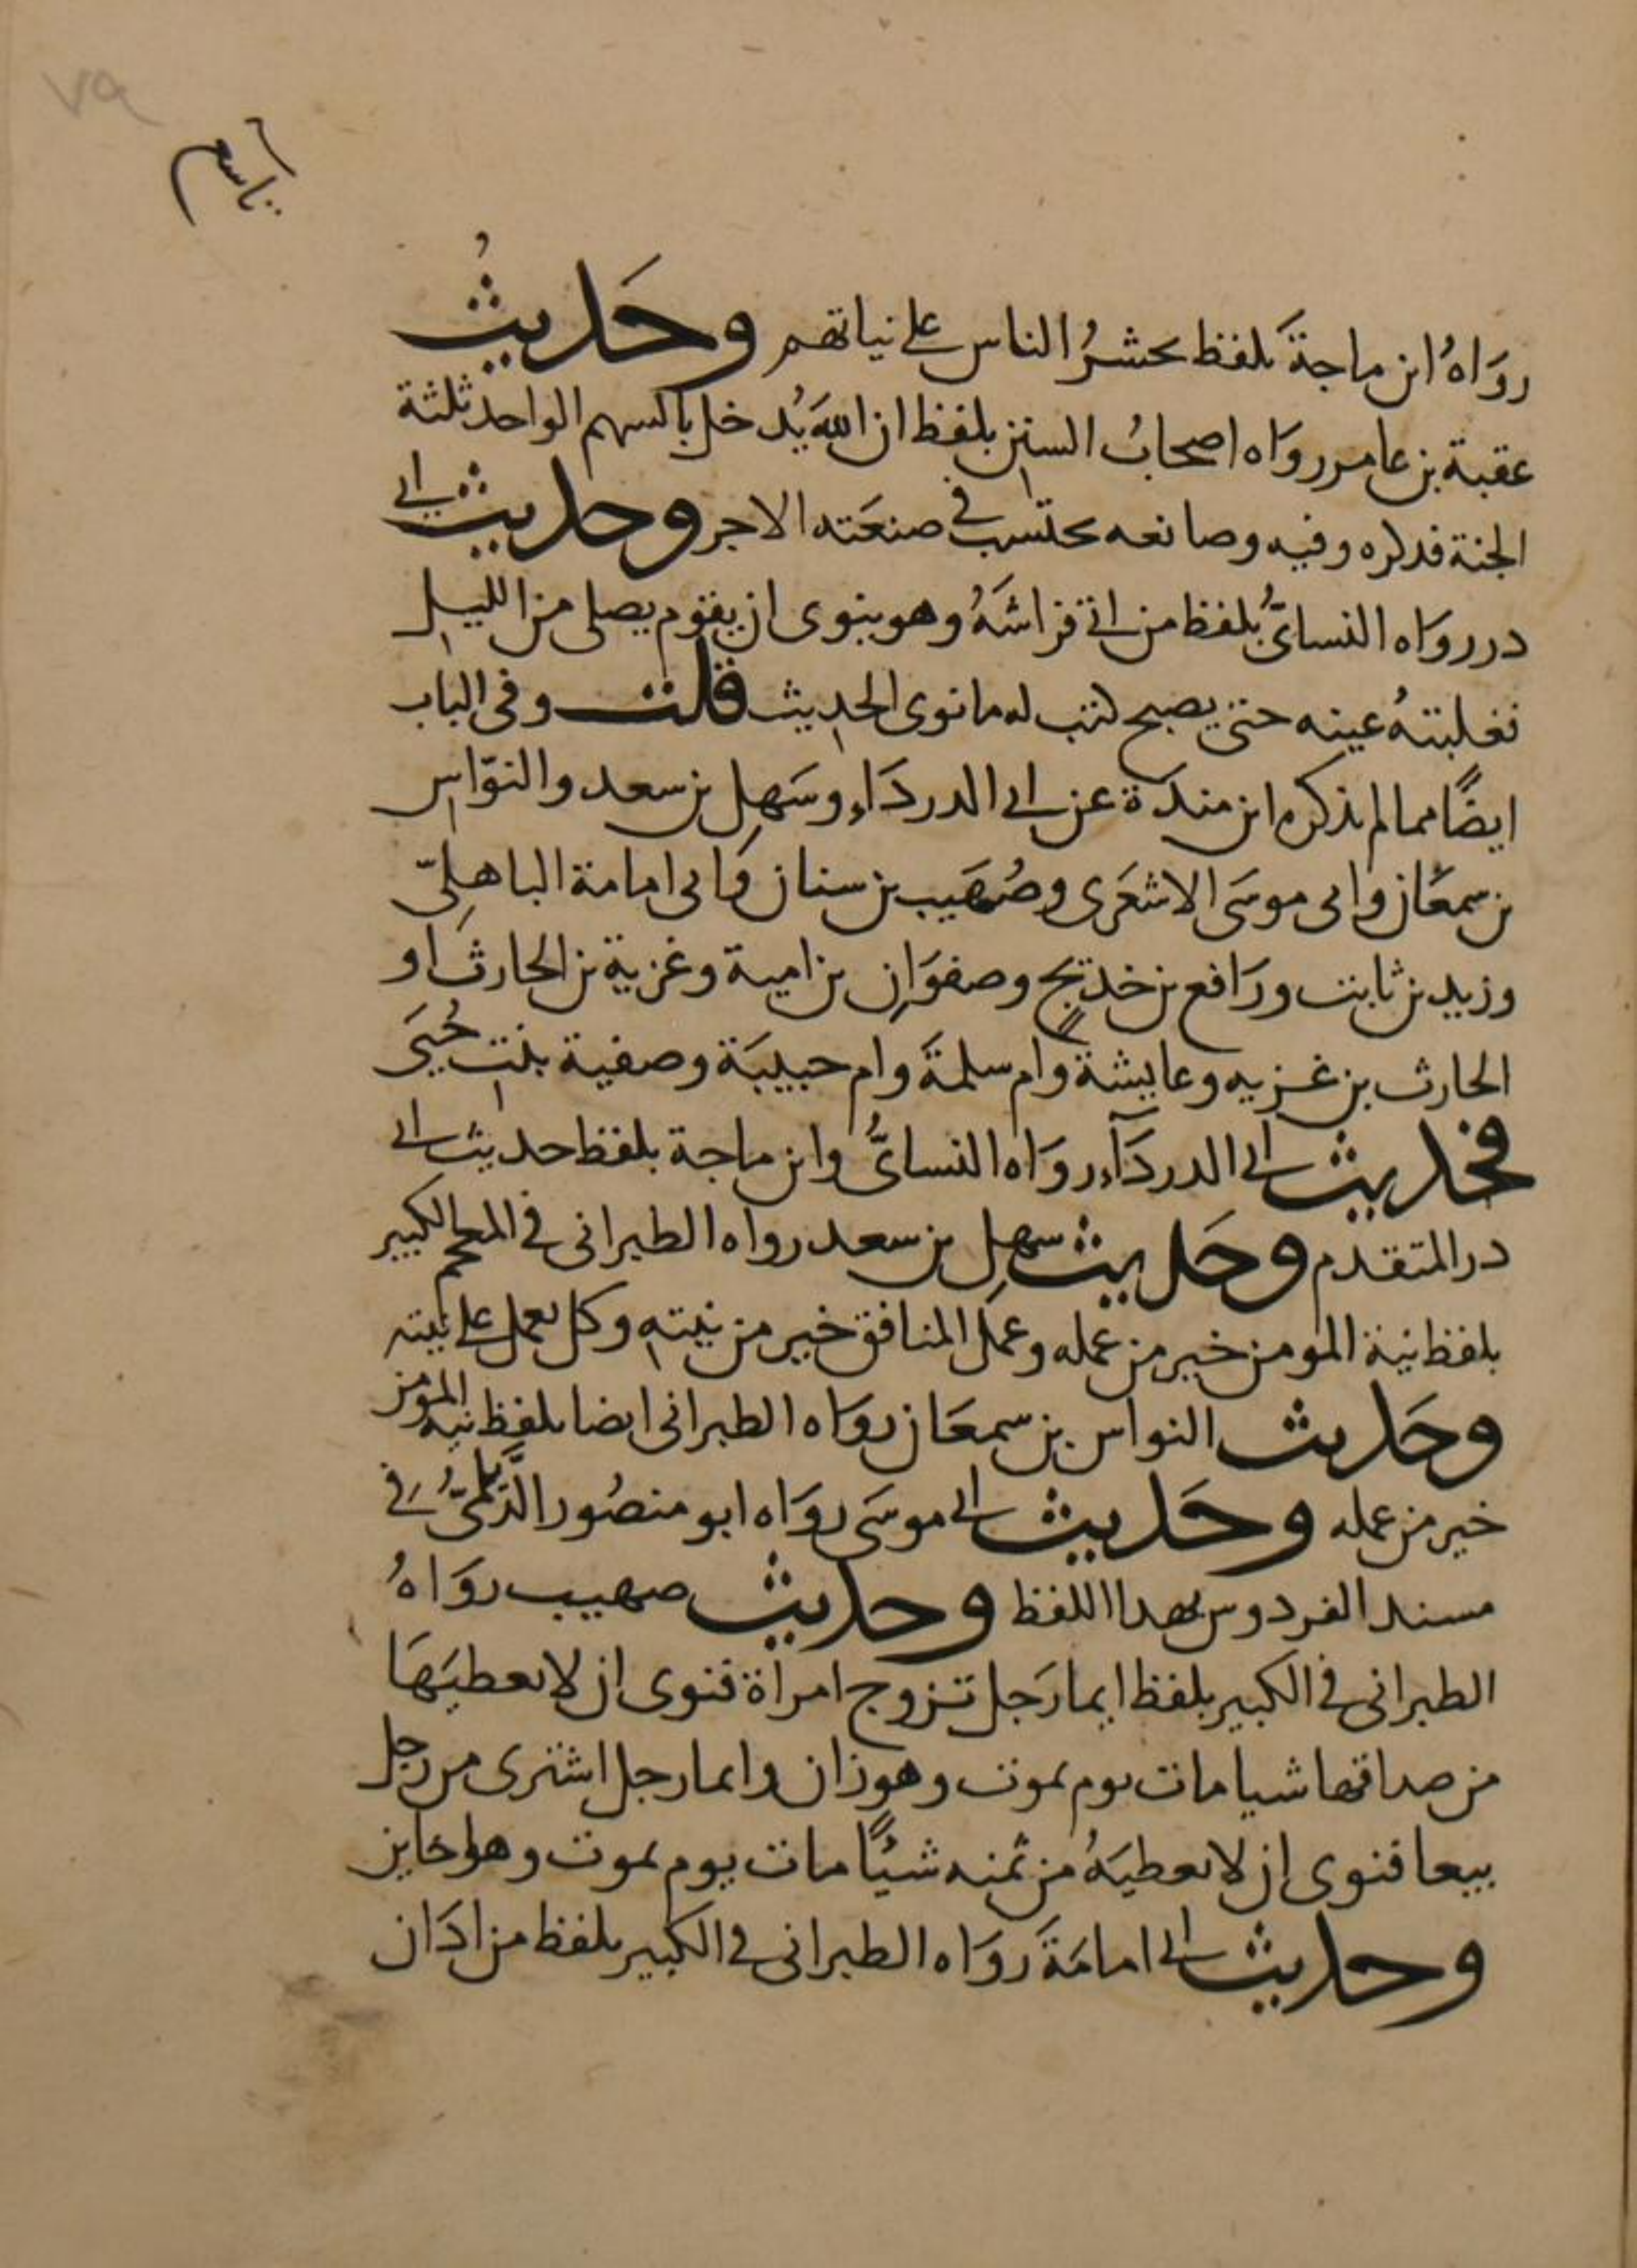 ٧٩
تاسع
رَوَاهُ ابن ماجةَ بلفظ يحشرُ الناس على نياتهم وحَديثُ
عقبة بن عامر رواه اصحابُ السنن بلفظ ان اللهَ يُدخل بالسهم الواحد ثلثة
الجنة فذكره وفيه وصانعه يحتسب في صنعَته الاجر وحديث ابي
ذر رواه النسائيُّ بلفظ من اتى فراشَهُ وهو ينوى ان يقوم يصلى من الليل
فغلبتهُ عينه حتى يصبح كتب له ما نوى الحديث قلت وفى الباب
ايضًا مما لم يذكره ابن مندَة عن ابي الدردَاءِ وسَهل بن سعد والنوّاس
بن سمعَان وابى موسَى الاشعَرى وصُهَيب بن سنان وابى امامة الباهليّ
وزيد بن ثابت ورَافع بن خديج وصفوَان بن امية وغزية بن الحارث او
الحارث بن غزيه وعايشة وام سلمةَ وام حبيبَة وصفية بنت حُيَى
فحديث ابي الدردَآءِ رواه النسائيُّ وابن ماجة بلفظ حديث ابي
ذر المتقدم وحَديث سهل بن سعد رواه الطبرانى في المعجم الكبير
بلفظ نية المومن خير من عمله وعمَل المنافق خير من نيته وكل يعمل على نيته
وحَديث النواس بن سمعَان روَاه الطبرانى ايضا بلفظ نيه المومن
خير من عمله وحَديث ابي موسَى روَاه ابو منصُور الدَّيلميُّ في
مسند الفردوس بهذا اللفظ وحديث صهيب روَاهُ
الطبرانى في الكبير بلفظ ايما رَجل تزوج امراة فنوى ان لا يعطيَهَا
من صداقها شيا مات يوم يموت وهو زان وايما رجل اشترى من رجل
بيعا فنوى ان لا يعطيَهُ من ثمنه شيئًا مات يوم يموت وهو خاين
وحديث ابي امامَةَ روَاه الطبرانى في الكبير بلفظ من ادَان